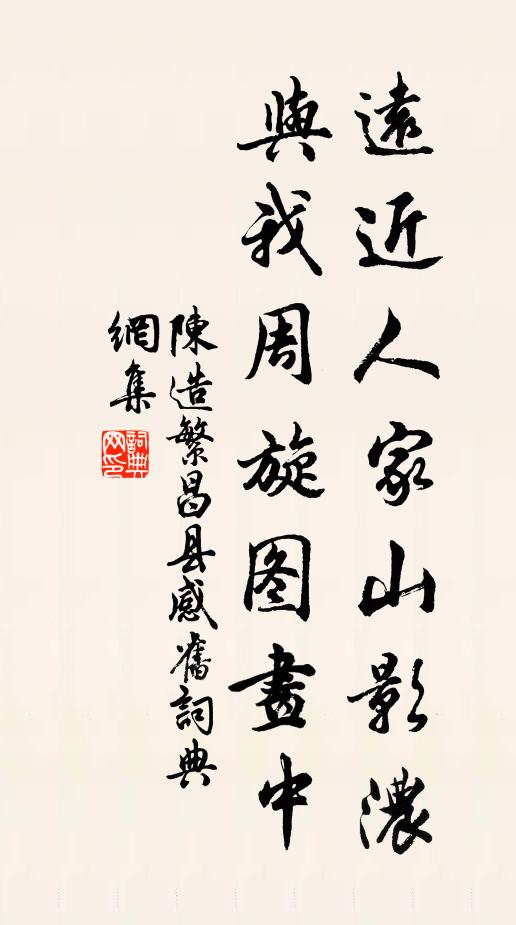 遠近人家山影濃
與我周旋图畫中
陳造繁昌县感舊詞典
網集
詞典
网印